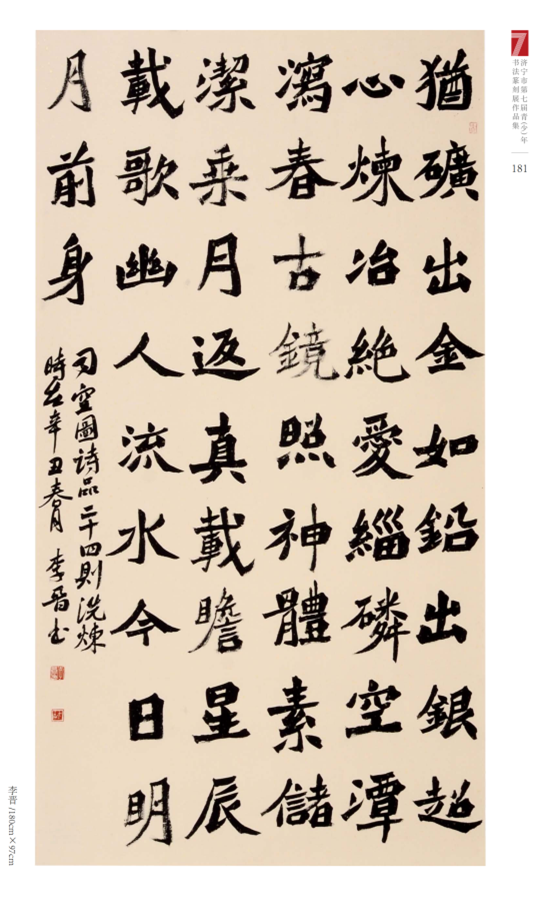 猶礦出金如鉛出銀超
心煉冶絶愛緇磷空潭
瀉春古鏡照神體素儲
潔乘月返真載瞻星辰
載歌幽人流水今日明
月前身
司空圖詩品二十四則洗煉
時在辛丑春月 李晋书
7
济宁市第七届青(少)年
书法篆刻展作品集
181
李晋/180cm×97cm